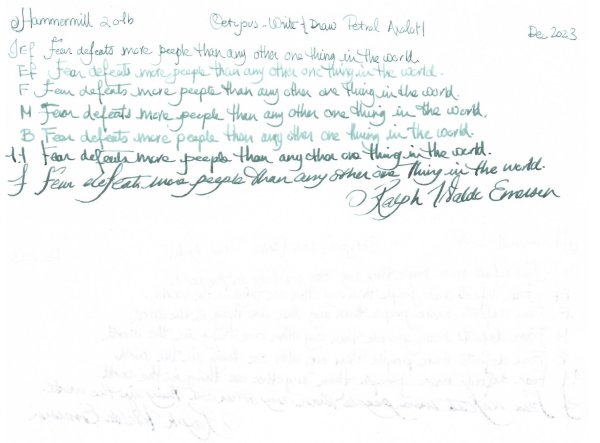 Hammermill 20lb Octopus - Write & Draw Petrol Axolotl Dec 2023
JEf Fear defeats more people than any other one thing in the world.
Ef Fear defeats more people than any other one thing in the world.
F Fear defeats more people than any other one thing in the world.
M Fear defeats more people than any other one thing in the world.
B Fear defeats more people than any other one thing in the world.
1.1 Fear defeats more people than any other one thing in the world.
f Fear defeats more people than any other one thing in the world.
Ralph Waldo Emerson